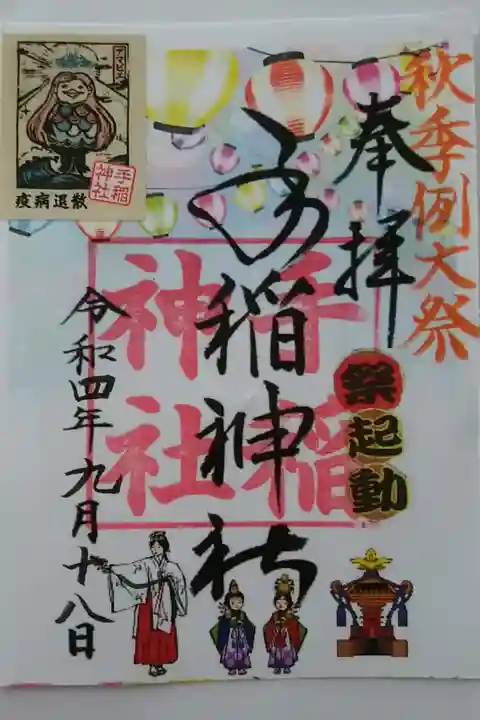 秋季例大祭
奉拝
祭起動
手稲神社
手稲
神社
令和四年九月十八日
アマビエ
手稲
神社
疫病退散